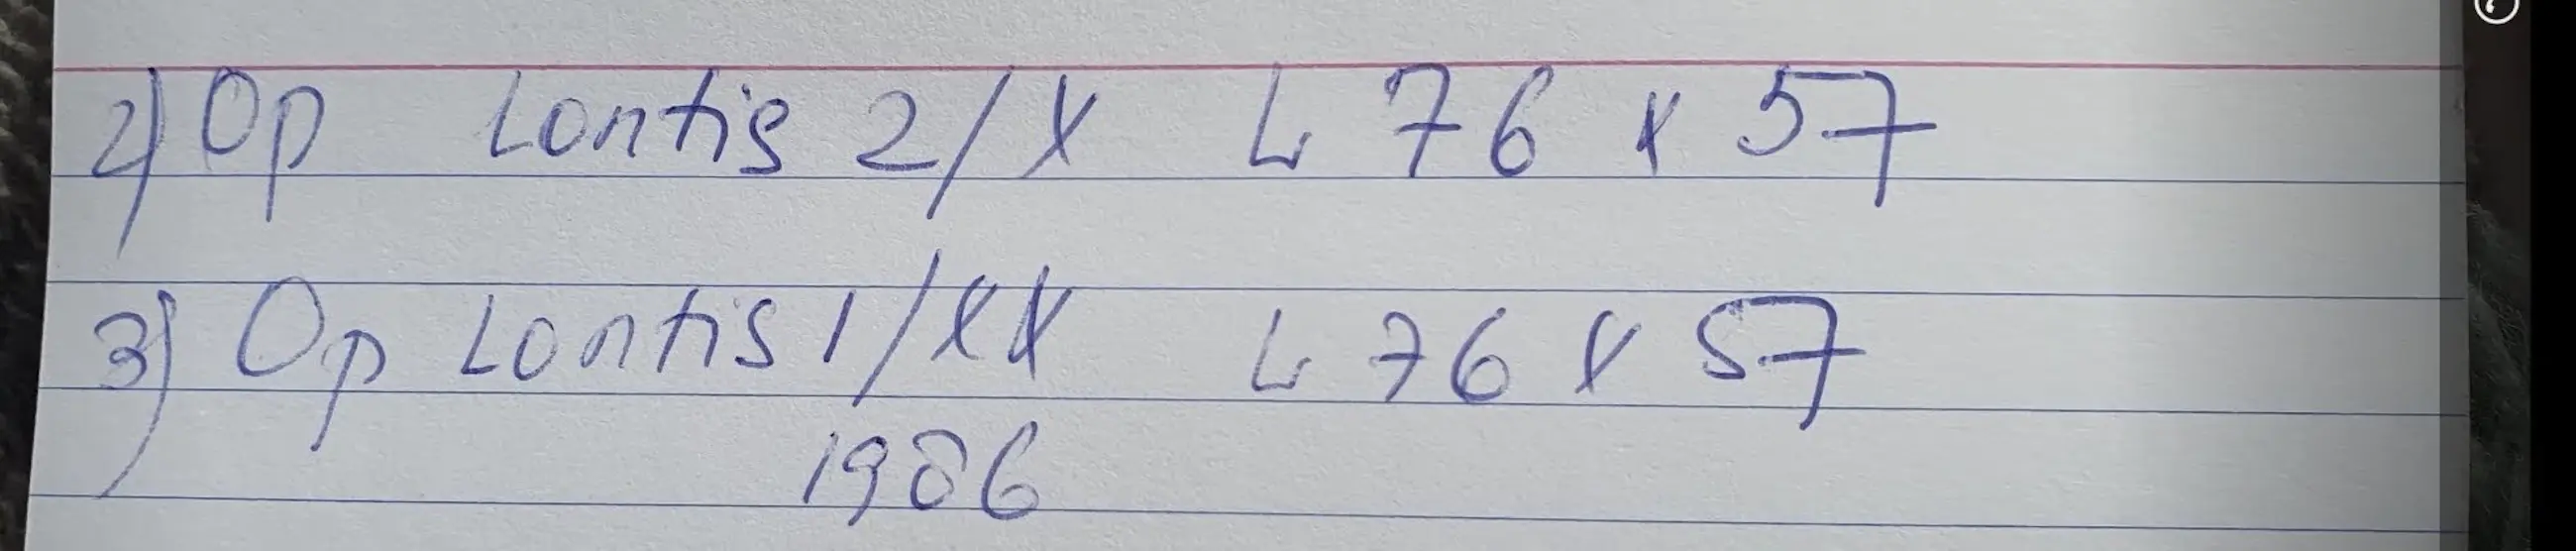 2) Op Lontis 2/X L 76 x 57
3) Op Lontis 1/XX L 76 x 57
1986